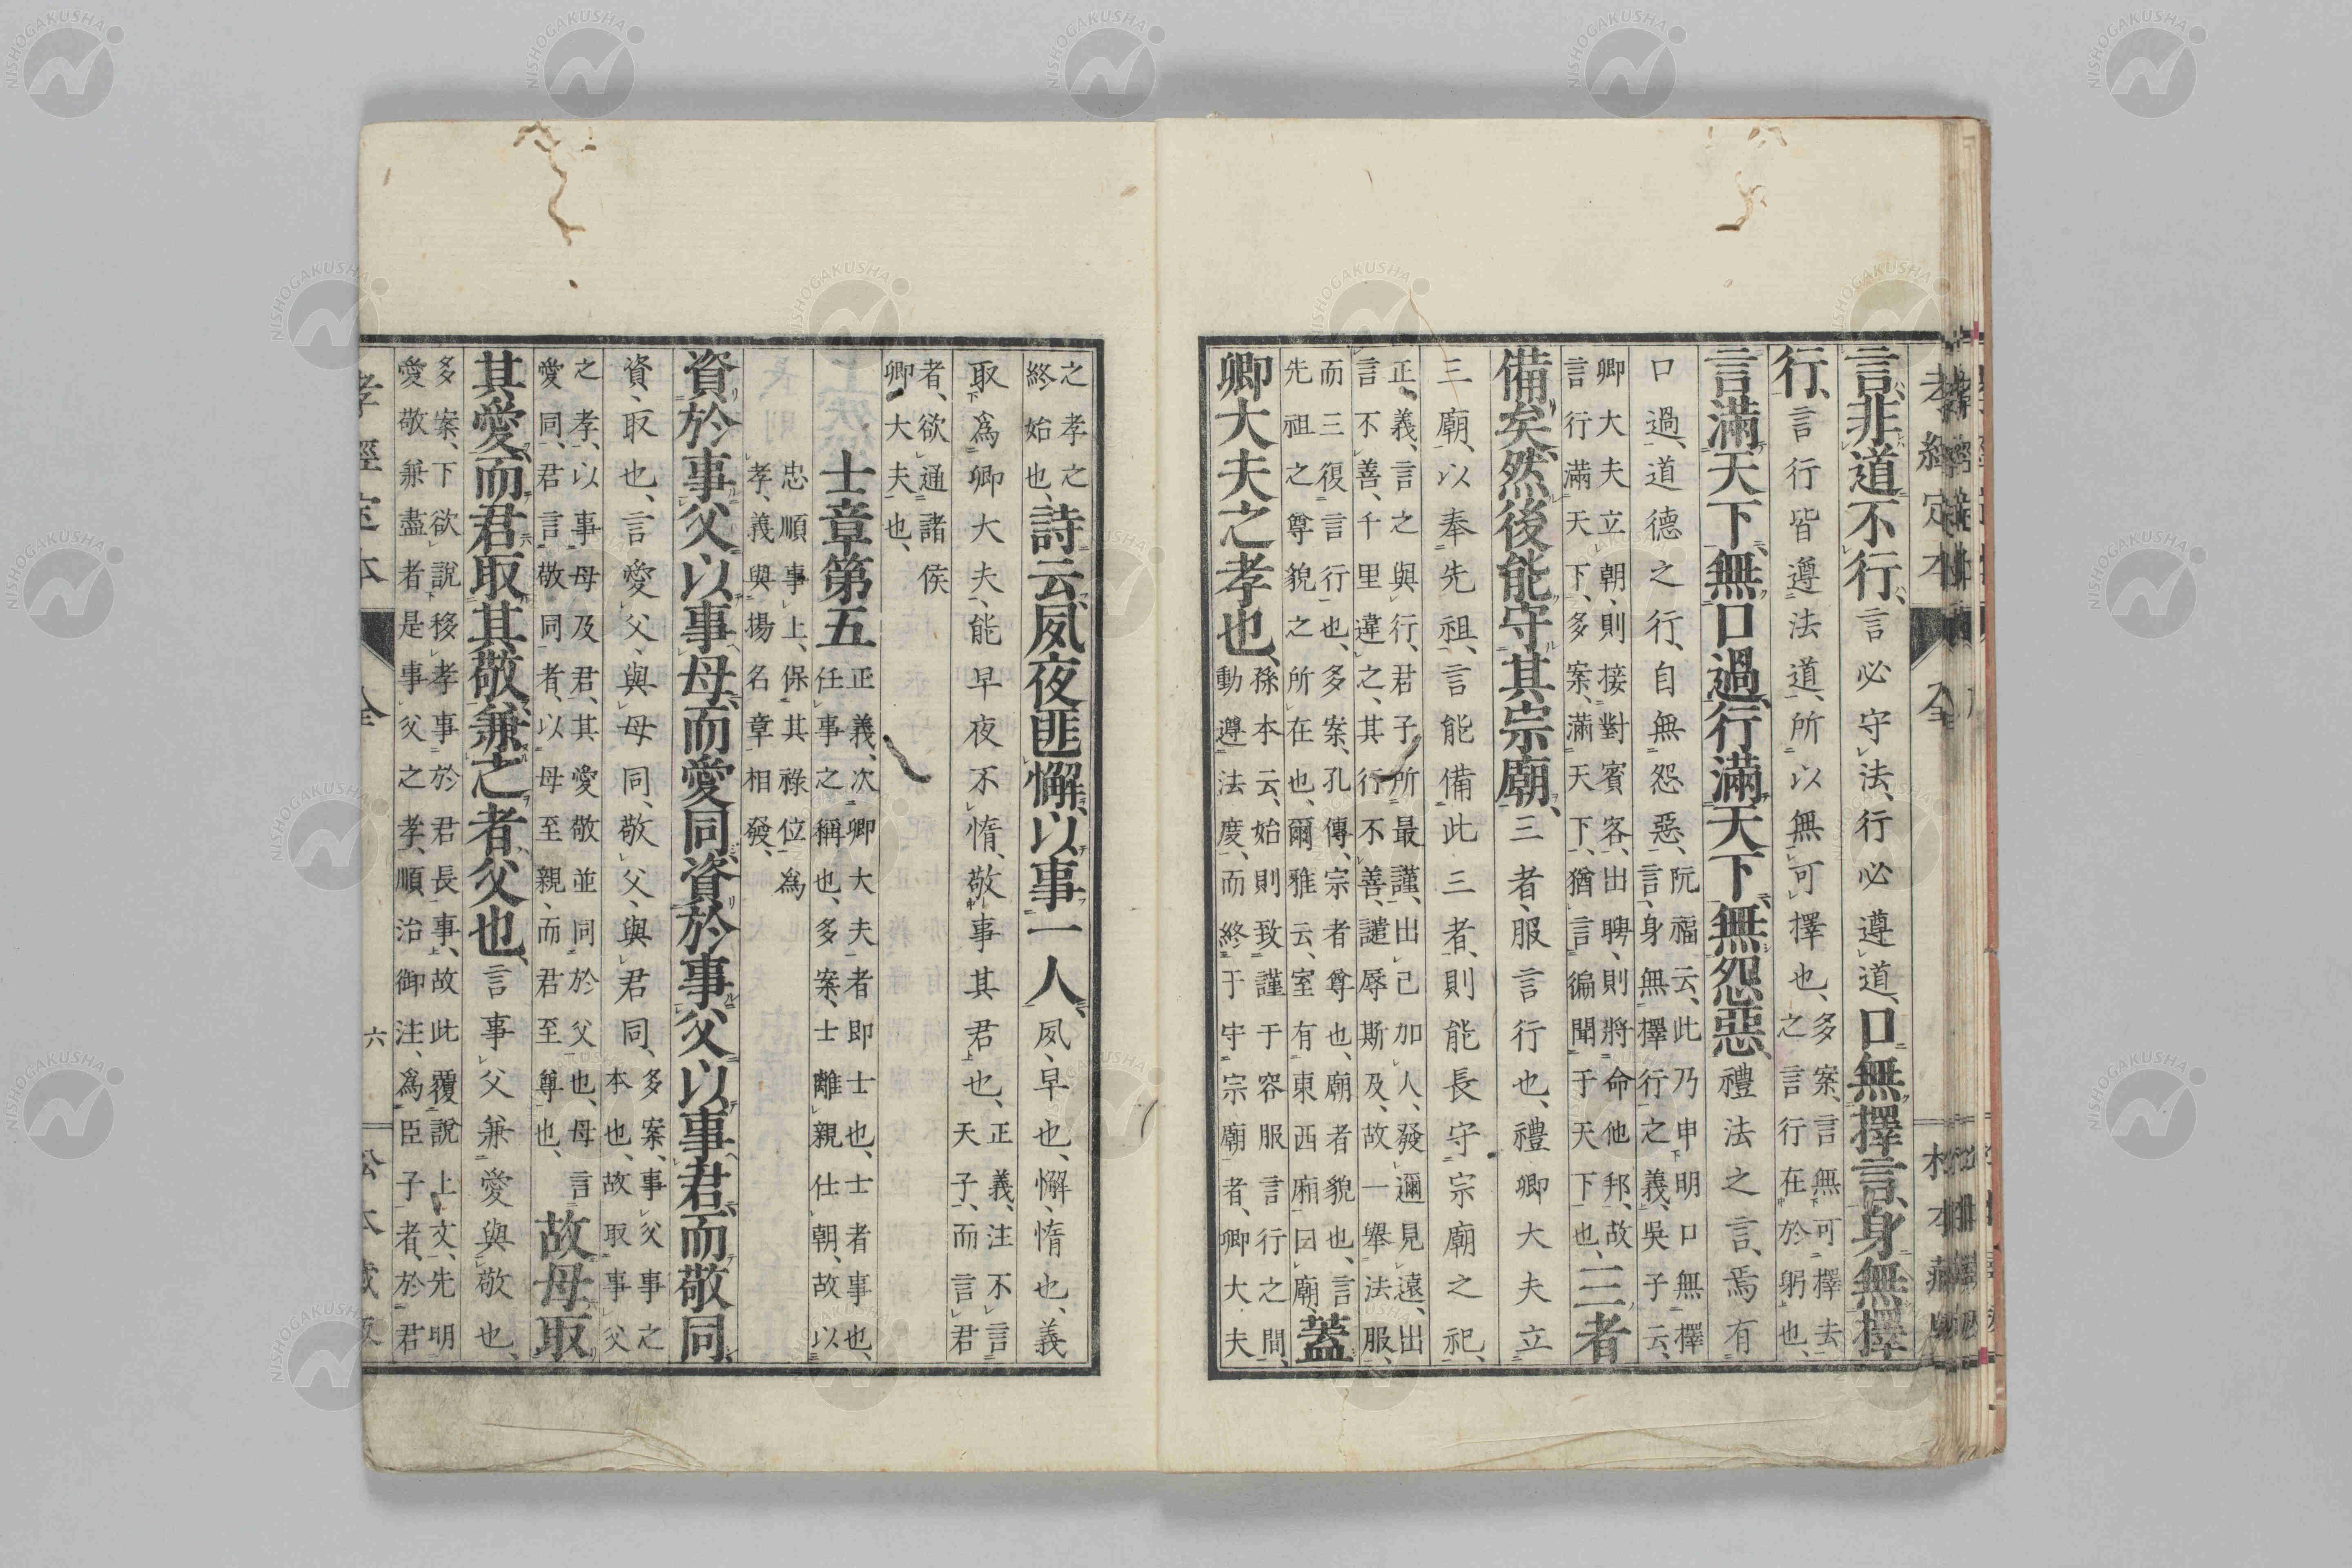 孝經定本 全 松本藏版
言、非道不行、言必守法、行必遵道、口無擇言、身無擇
行、言行皆遵法道、所以無可擇也、多案、言無可擇去
之言行在於躬也、
言滿天下、無口過、行滿天下、無怨惡、禮法之言、焉有
口過、道德之行、自無怨惡、阮福云、此乃申明口無擇
言、身無擇行之義、吳子云、
卿大夫立朝、則接對賓客、出聘、則將命他邦、故
言行滿天下、多案、滿天下、猶言徧聞于天下也、三者
備矣、然後能守其宗廟、三者、服言行也、禮卿大夫立
三廟、以奉先祖、言能備此三者、則能長守宗廟之祀、
正義、言之與行、君子所最謹、出己加人、發邇見遠、出
言不善、千里違之、其行不善、譴辱斯及、故一舉法服、
而三復言行也、多案、孔傳、宗者尊也、廟者貌也、言
先祖之尊貌之所在也、爾雅云、室有東西廂曰廟、蓋
卿大夫之孝也、孫本云、始則致謹于容服言行之間、
動遵法度、而終于守宗廟者、卿大夫
之孝之
終始也、詩云、夙夜匪懈、以事一人、夙、早也、懈、惰也、義
取爲卿大夫、能早夜不惰、敬事其君也、正義、注不言
天子、而言君
者、欲通諸侯
卿大夫也、
士章第五 正義、次卿大夫者即士也、士者事也、
任事之稱也、多案、士離親仕朝、故以
忠順事上、保其祿位爲
孝、義與揚名章相發、
資於事父以事母、而愛同、資於事父以事君、而敬同、
資、取也、言愛父、與母同、敬父、與君同、多案、事父事之
本也、故取事父
之孝、以事母及君、其愛敬並同於父也、母言
愛同、君言敬同者、以母至親、而君至尊也、故母取
其愛、而君取其敬、兼之者父也、言事父兼愛與敬也、
多案、下欲說移孝事於君長事、故此覆說上文、先明
愛敬兼盡者是事父之孝、順治御注、爲臣子者、於君
孝經定本 全 六 松本藏版
NISHOGAKUSHA